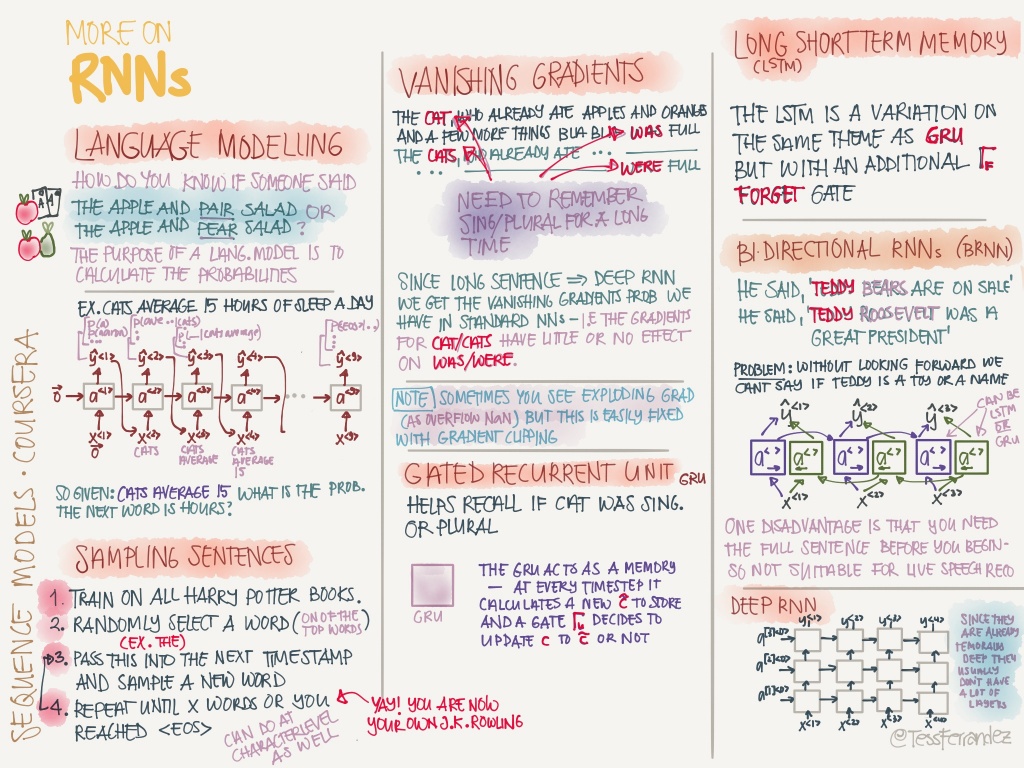 MORE ON
RNNs
LANGUAGE MODELLING
HOW DO YOU KNOW IF SOMEONE SAID
THE APPLE AND PAIR SALAD OR
THE APPLE AND PEAR SALAD ?
THE PURPOSE OF A LANG. MODEL IS TO
CALCULATE THE PROBABILITIES
EX. CATS AVERAGE 15 HOURS OF SLEEP A DAY
P(a)
P(aaron)
P(average|cats)
P(..|cats average)
P(<EOS>|..)
ŷ<1> ŷ<2> ŷ<3> ŷ<4> ŷ<9>
0 a<1> a<2> a<3> a<4> ... a<9>
x<1> x<2> x<3> x<4> x<9>
0
CATS
CATS
AVERAGE
CATS
AVERAGE
15
SO GIVEN: CATS AVERAGE 15 WHAT IS THE PROB.
THE NEXT WORD IS HOURS?
SAMPLING SENTENCES
1. TRAIN ON ALL HARRY POTTER BOOKS.
2. RANDOMLY SELECT A WORD (ON OF THE
TOP WORDS)
(EX. THE)
3. PASS THIS INTO THE NEXT TIMESTAMP
AND SAMPLE A NEW WORD
4. REPEAT UNTIL X WORDS OR YOU
REACHED <EOS>
CAN DO AT
CHARACTERLEVEL
AS WELL
YAY! YOU ARE NOW
YOUR OWN J.K. ROWLING
SEQUENCE MODELS · COURSERA
VANISHING GRADIENTS
THE CAT, WHO ALREADY ATE APPLES AND ORANGE
AND A FEW MORE THINGS BLA BLA WAS FULL
THE CATS, WHO ALREADY ATE ...
... WERE FULL
NEED TO REMEMBER
SING/PLURAL FOR A LONG
TIME
SINCE LONG SENTENCE ⇒ DEEP RNN
WE GET THE VANISHING GRADIENTS PROB WE
HAVE IN STANDARD NNs - I.E THE GRADIENTS
FOR CAT/CATS HAVE LITTLE OR NO EFFECT
ON WAS/WERE.
NOTE SOMETIMES YOU SEE EXPLODING GRAD
(AS OVERFLOW NaN) BUT THIS IS EASILY FIXED
WITH GRADIENT CLIPPING
GATED RECURRENT UNIT GRU
HELPS RECALL IF CAT WAS SING.
OR PLURAL
GRU
THE GRU ACTS AS A MEMORY
— AT EVERY TIMESTEP IT
CALCULATES A NEW c̃ TO STORE
AND A GATE Γu DECIDES TO
UPDATE C TO c̃ OR NOT
LONG SHORT TERM MEMORY
(LSTM)
THE LSTM IS A VARIATION ON
THE SAME THEME AS GRU
BUT WITH AN ADDITIONAL Γf
FORGET GATE
BI-DIRECTIONAL RNNs (BRNN)
HE SAID, 'TEDDY BEARS ARE ON SALE'
HE SAID, 'TEDDY ROOSEVELT WAS A
GREAT PRESIDENT'
PROBLEM: WITHOUT LOOKING FORWARD WE
CANT SAY IF TEDDY IS A TOY OR A NAME
CAN BE
LSTM
OR
GRU
ŷ<1> ŷ<2> ŷ<3>
a<> a<> a<> a<> a<> a<>
x<1> x<2> x<3>
ONE DISADVANTAGE IS THAT YOU NEED
THE FULL SENTENCE BEFORE YOU BEGIN-
SO NOT SUITABLE FOR LIVE SPEECH RECO
DEEP RNN
y<1> y<2> y<3> y<4>
a[3]<0>
a[2]<0>
a[1]<0>
x<1> x<2> x<3> x<4>
SINCE THEY
ARE ALREADY
TEMORALLY
DEEP THEY
USUALLY
DON'T HAVE
A LOT OF
LAYERS
@TessFerrandez